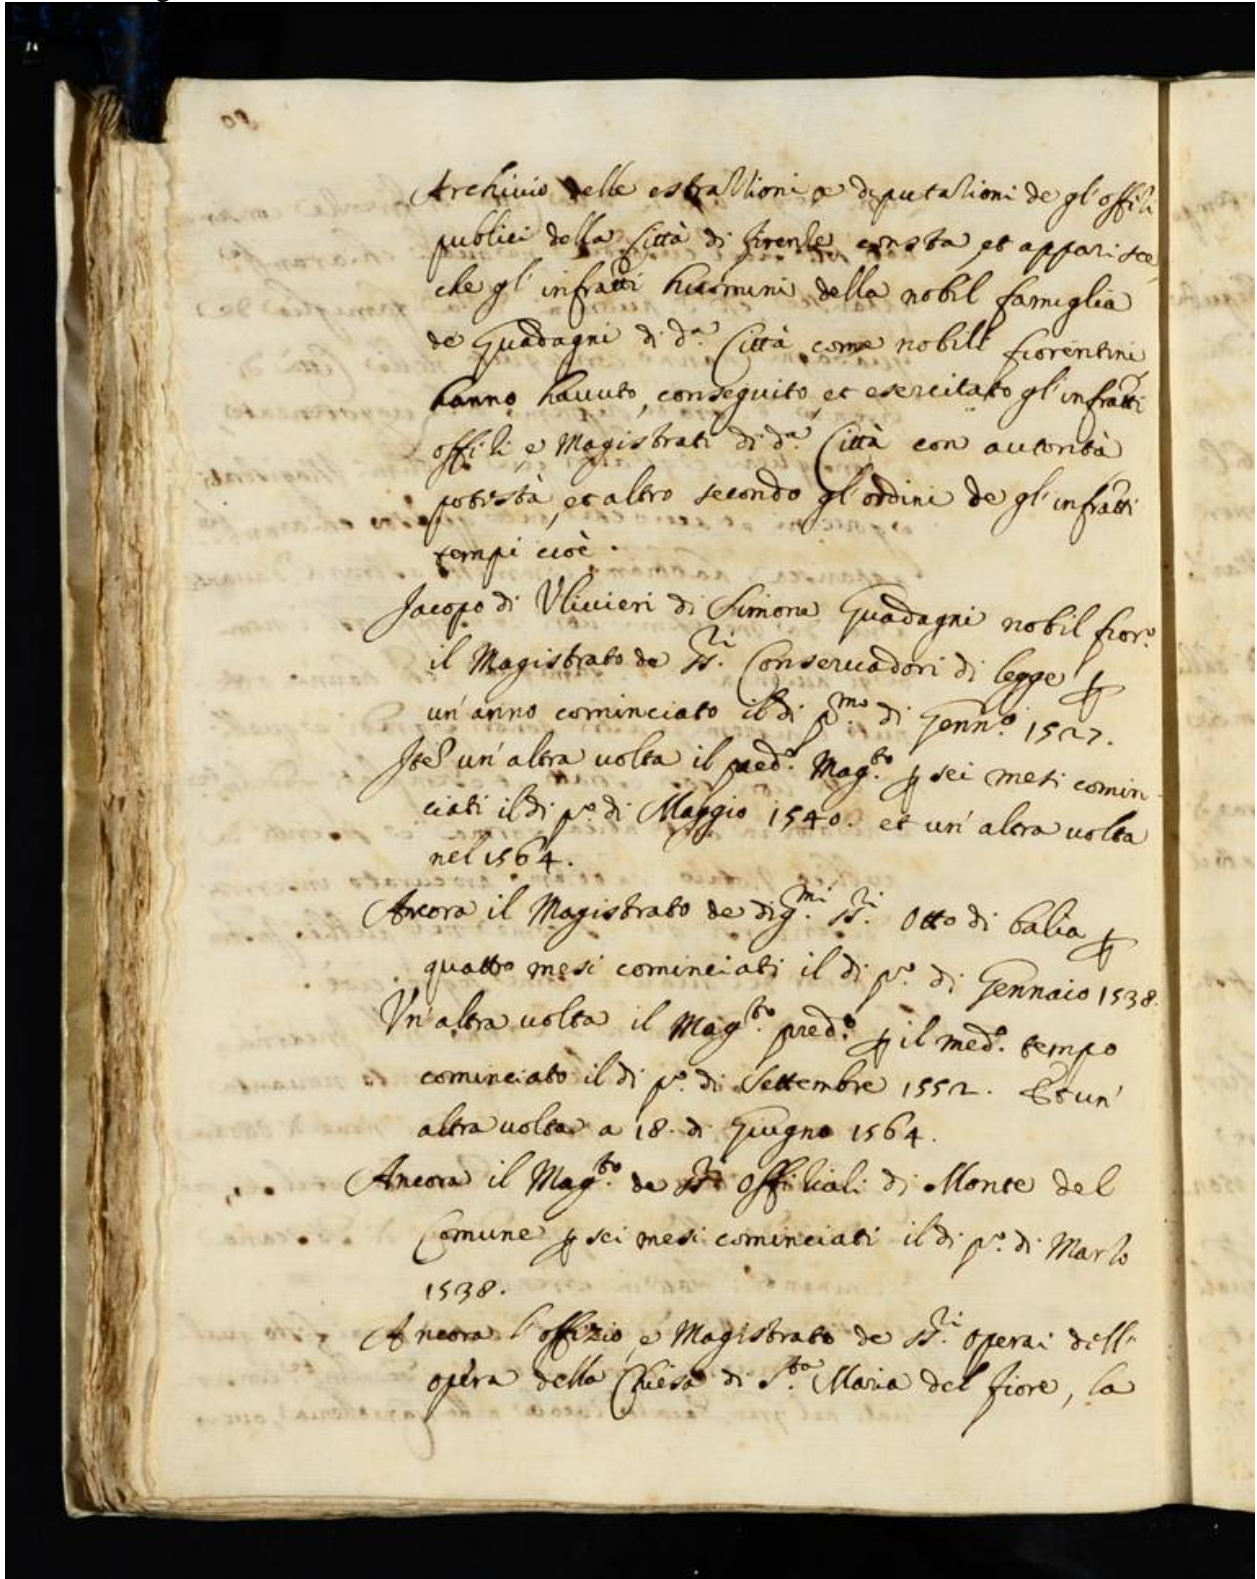 80
Archiuio delle estrazzioni e deputazioni de gl'offizi
publici della Città di firenze consta et apparisce
che gl'infratti huomini della nobil famiglia
de Guadagni di da. Città come nobili fiorentini
hanno hauuto, conseguito, et esercitato gl'infratti
offizi, e Magistrati di da. Città con autorità
potestà, et altro secondo gl'ordini de gl'infratti
tempi cioè.
Jacopo di Vliuieri di Simone Guadagni nobil fiorno.
il Magistrato de SSri. Conseruadori di legge p
un'anno cominciato il di pmo. di Gennо. 1527.
Ite un'altra uolta il predo. Magto. p sei mesi comin
ciati il di po. di Maggio 1540. et un'altra uolta
nel 1564.
Ancora il Magistrato de digmi. SSri. Otto di balia p
quattro mesi cominciati il di po. di Gennaio 1538.
Vn'altra uolta il Magto. predo. p il medo. tempo
cominciato il di po. di Settembre 1552. Et un'
altra uolta a 18. di Giugno 1564.
Ancora il Magto. de SSri offiziali di Monte del
Comune p sei mesi cominciati il di po. di Marzo
1538.
Ancora l'offizio, e Magistrato de SSri. operai dell'
opera della Chiesa di Sta. Maria del fiore, la